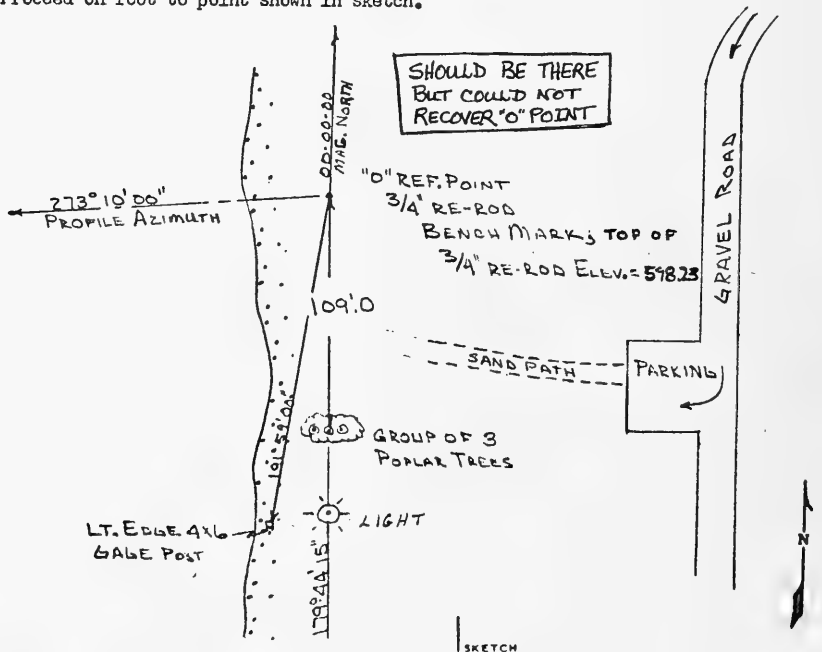 Proceed on foot to point shown in sketch.
SHOULD BE THERE
BUT COULD NOT
RECOVER "O" POINT
00-00-00
MAG. NORTH
273° 10' 00"
PROFILE AZIMUTH
"O" REF. POINT
3/4" RE-ROD
BENCH MARK; TOP OF
3/4" RE-ROD ELEV. = 598.23
GRAVEL ROAD
109'.0
SAND PATH
PARKING
GROUP OF 3
POPLAR TREES
191°59'00"
LT. EDGE 4x6
GAGE POST
LIGHT
179°44'15"
N
SKETCH